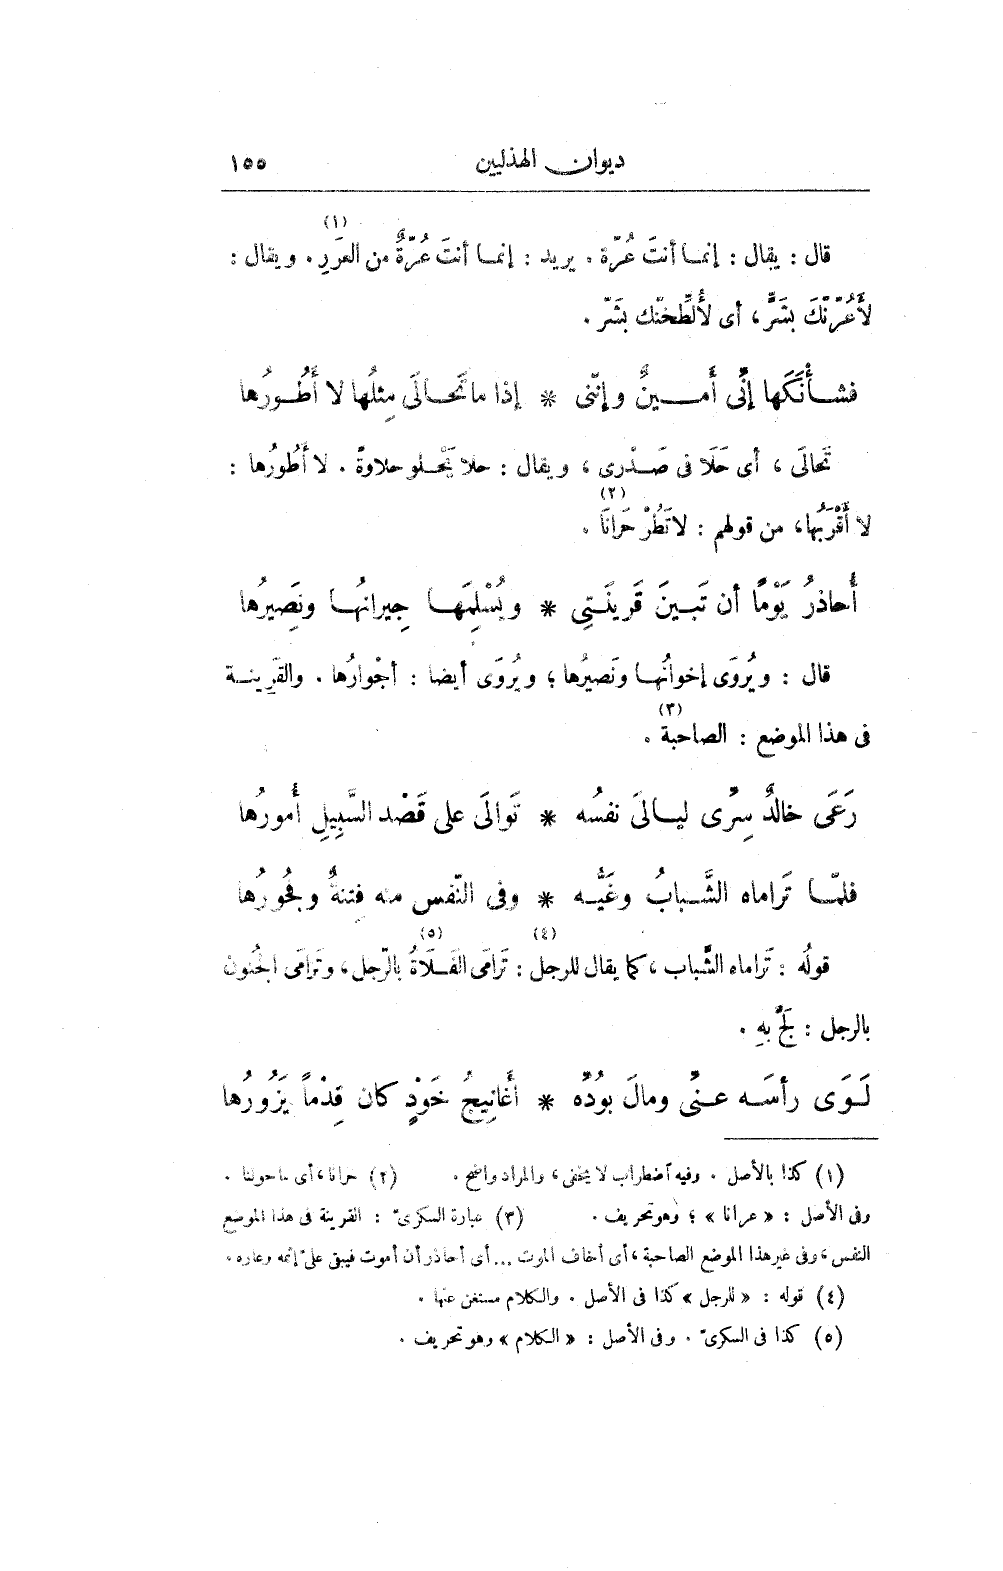 ديوان الهذليين ١٥٥
قال : يقال : إنما أنتَ عُرّة . يريد : إنما أنتَ عُرّةٌ من العَرَرِ (١) . ويقال :
لأَعُرّنّكَ بشَرٍّ ، أى لأُلَطِّخنّك بشَرّ .
فشأْنَكَها إنِّى أَمينٌ وإنّنى * إذا ما تَحالَى مِثلُها لا أَطُورُها
تَحالَى ، أى حَلَا فى صَدْرى ، ويقال : حلا يَحْلو حلاوةً . لا أَطُورُها :
لا أَقْرَبُها، من قولهم : لا تَطُرْ حَرَانَا (٢) .
أُحاذرُ يَوْمًا أن تَبينَ قَرينَتِى * ويُسْلِمَها جِيرانُها ونَصِيرُها
قال : ويُروَى إخوانُها ونَصيرُها ؛ ويُروَى أيضا : أجْوارُها . والقَرِينة
فى هذا الموضع : الصاحبة (٣) .
رَعَى خالدٌ سِرِّى ليالىَ نفسُه * تَوالَى على قَصْد السَّبِيلِ أُمورُها
فلمّا تَراماه الشَّبابُ وغَيُّه * وفى النّفس منه فِتنةٌ وفُجورُها
قولُه : تَراماه الشَّباب ، كما يقال للرجل (٤) : تَرامَى الفَلَاةُ (٥) بالرّجل ، وتَرامَى الجُنون
بالرجل : لَجَّ بهِ .
لَوَى رأسَه عنِّى ومالَ بوُدِّه * أَغانِيجُ خَوْدٍ كان قِدْمًا يَزُورُها
(١) كذا بالأصل . وفيه اضطراب لا يخفى ، والمراد واضح . (٢) حرانا ، أى ماحولنا .
وفى الأصل : « عرانا » ؛ وهو تحريف . (٣) عبارة السكرىّ : القرينة فى هذا الموضع
النفس ، وفى غير هذا الموضع الصاحبة ، أى أخاف الموت ... أى أحاذر أن أموت فيبقى علىّ إثمه وعاره .
(٤) قوله : « للرجل » كذا فى الأصل . والكلام مستغن عنها .
(٥) كذا فى السكرىّ . وفى الأصل : « الكلام » وهو تحريف .